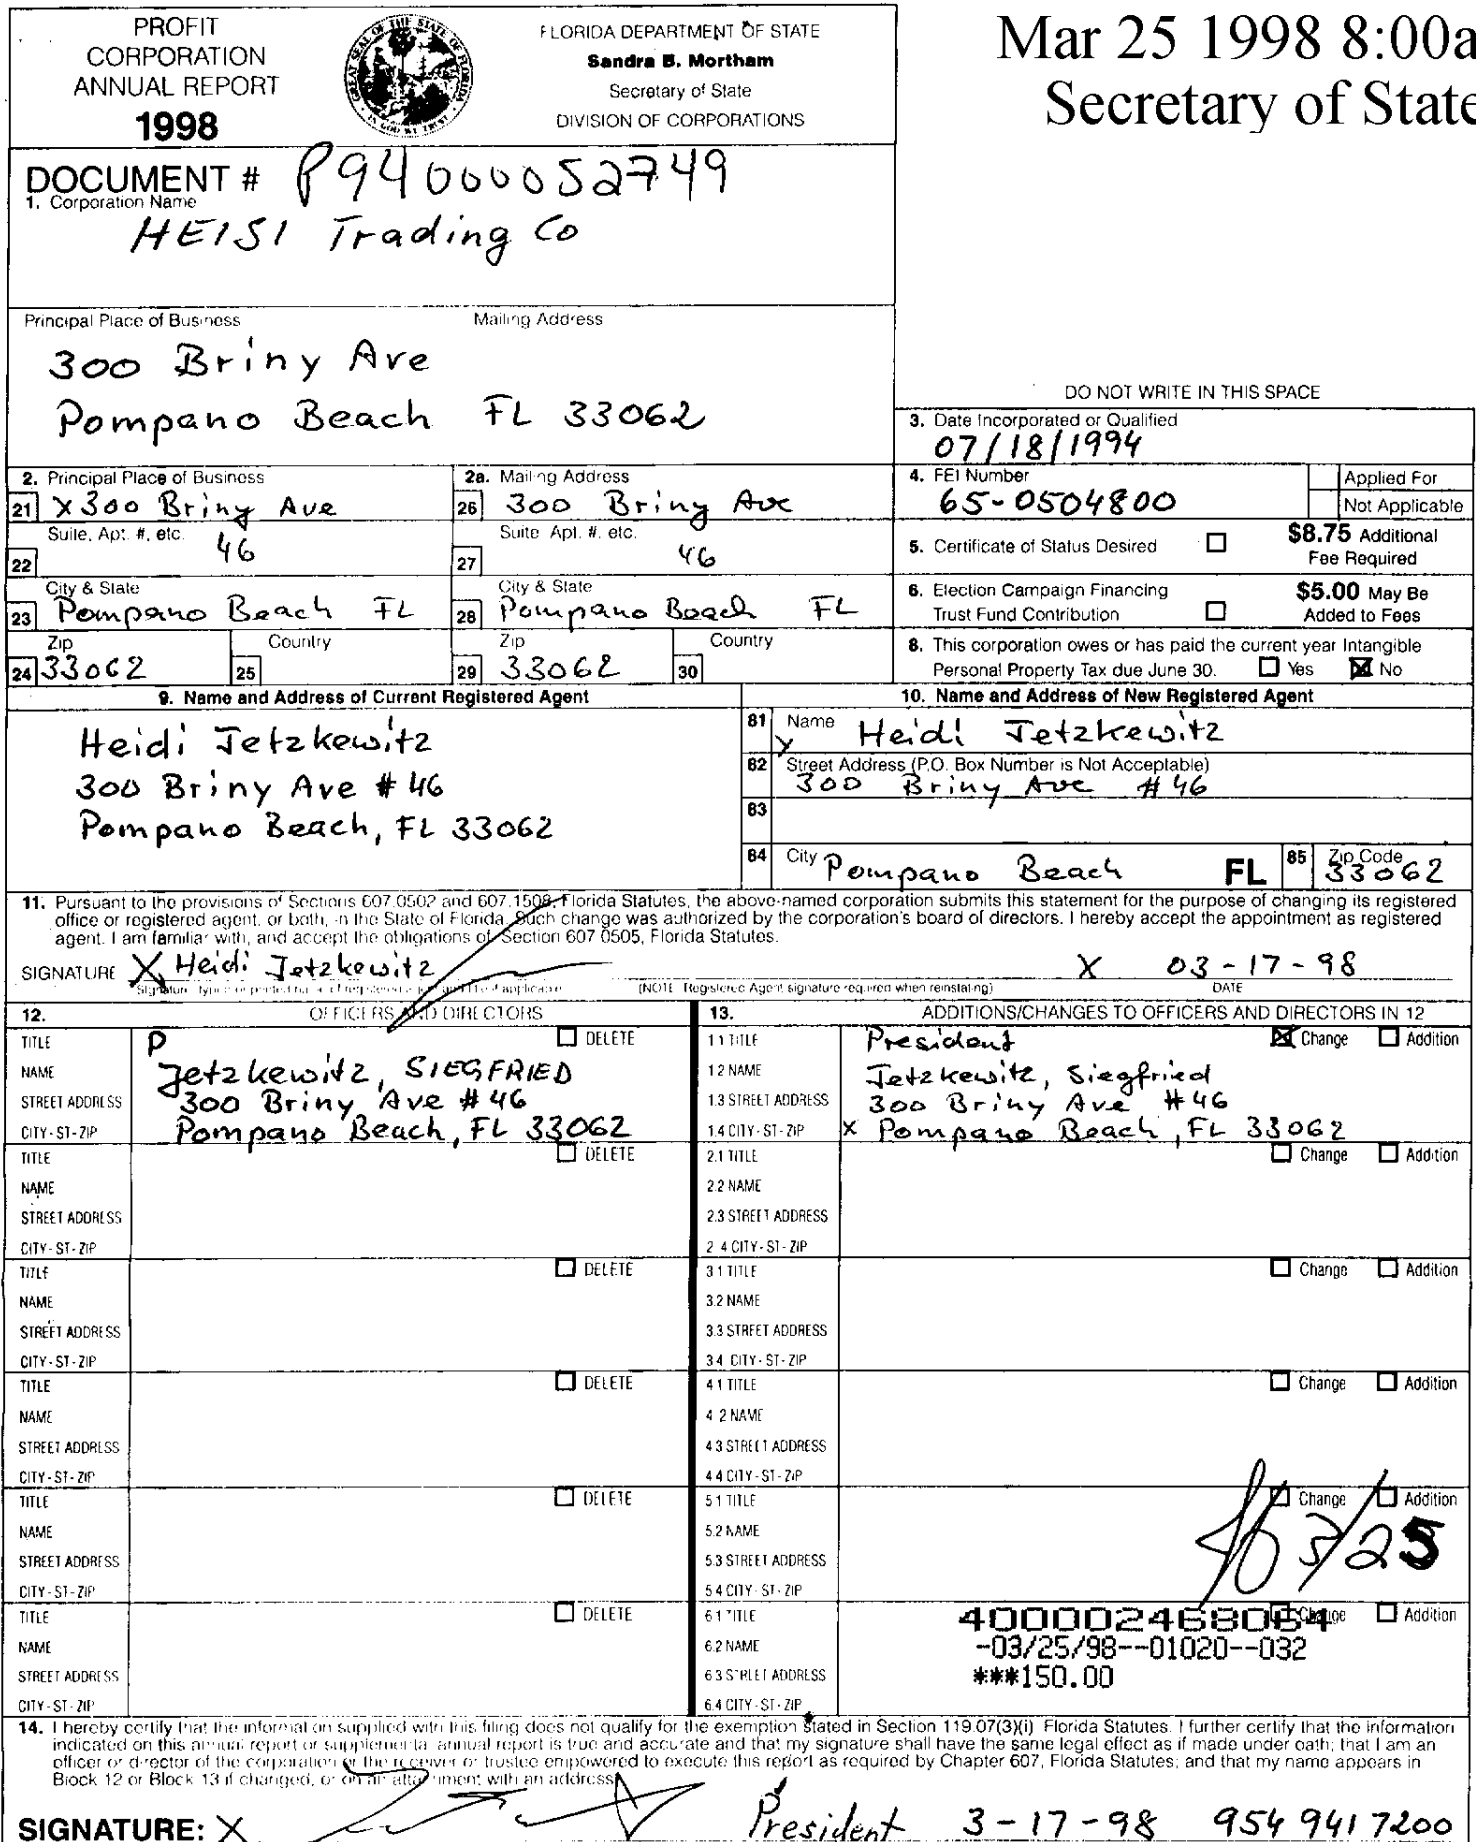 PROFIT
CORPORATION
ANNUAL REPORT
1998
FLORIDA DEPARTMENT OF STATE
Sandra B. Mortham
Secretary of State
DIVISION OF CORPORATIONS
Mar 25 1998 8:00a
Secretary of State
DOCUMENT # P94000052749
1. Corporation Name
HEISI Trading Co
Principal Place of Business Mailing Address
300 Briny Ave
Pompano Beach FL 33062
DO NOT WRITE IN THIS SPACE
3. Date Incorporated or Qualified
07/18/1994
2. Principal Place of Business 2a. Mailing Address
21 X 300 Briny Ave 26 300 Briny Ave
4. FEI Number Applied For
65-0504800 Not Applicable
Suite, Apt. #, etc. Suite Apt. #, etc.
22 46 27 46
5. Certificate of Status Desired $8.75 Additional
Fee Required
City & State City & State
23 Pompano Beach FL 28 Pompano Beach FL
6. Election Campaign Financing $5.00 May Be
Trust Fund Contribution Added to Fees
Zip Country Zip Country
24 33062 25 29 33062 30
8. This corporation owes or has paid the current year Intangible
Personal Property Tax due June 30. Yes No
9. Name and Address of Current Registered Agent
Heidi Jetzkewitz
300 Briny Ave # 46
Pompano Beach, FL 33062
10. Name and Address of New Registered Agent
81 Name Heidi Jetzkewitz
82 Street Address (P.O. Box Number is Not Acceptable)
300 Briny Ave # 46
83
84 City Pompano Beach FL 85 Zip Code 33062
11. Pursuant to the provisions of Sections 607.0502 and 607.1508, Florida Statutes, the above-named corporation submits this statement for the purpose of changing its registered
office or registered agent, or both, in the State of Florida. Such change was authorized by the corporation's board of directors. I hereby accept the appointment as registered
agent. I am familiar with, and accept the obligations of, Section 607 0505, Florida Statutes.
SIGNATURE X Heidi Jetzkewitz X 03-17-98
(NOTE Registered Agent signature required when reinstating) DATE
12. OFFICERS AND DIRECTORS
TITLE P DELETE
NAME Jetzkewitz, SIEGFRIED
STREET ADDRESS 300 Briny Ave # 46
CITY-ST-ZIP Pompano Beach, FL 33062
TITLE DELETE
NAME
STREET ADDRESS
CITY-ST-ZIP
TITLE DELETE
NAME
STREET ADDRESS
CITY-ST-ZIP
TITLE DELETE
NAME
STREET ADDRESS
CITY-ST-ZIP
TITLE DELETE
NAME
STREET ADDRESS
CITY-ST-ZIP
TITLE DELETE
NAME
STREET ADDRESS
CITY-ST-ZIP
13. ADDITIONS/CHANGES TO OFFICERS AND DIRECTORS IN 12
1 1 TITLE President Change Addition
1 2 NAME Jetzkewitz, Siegfried
1.3 STREET ADDRESS 300 Briny Ave # 46
1.4 CITY-ST-ZIP X Pompano Beach, FL 33062
2.1 TITLE Change Addition
2.2 NAME
2.3 STREET ADDRESS
2 4 CITY-ST-ZIP
3 1 TITLE Change Addition
3.2 NAME
3.3 STREET ADDRESS
3 4 CITY-ST-ZIP
4 1 TITLE Change Addition
4 2 NAME
4 3 STREET ADDRESS
4 4 CITY-ST-ZIP
5 1 TITLE Change Addition
5.2 NAME
5.3 STREET ADDRESS
5 4 CITY-ST-ZIP
3/25
6 1 TITLE 400002468064 Change Addition
6.2 NAME -03/25/98--01020--032
6 3 STREET ADDRESS ***150.00
6.4 CITY-ST-ZIP
14. I hereby certify that the information supplied with this filing does not qualify for the exemption stated in Section 119.07(3)(i) Florida Statutes. I further certify that the information
indicated on this annual report or supplemental annual report is true and accurate and that my signature shall have the same legal effect as if made under oath; that I am an
officer or director of the corporation or the receiver or trustee empowered to execute this report as required by Chapter 607, Florida Statutes; and that my name appears in
Block 12 or Block 13 if changed, or on an attachment with an address.
SIGNATURE: X President 3-17-98 954 941 7200